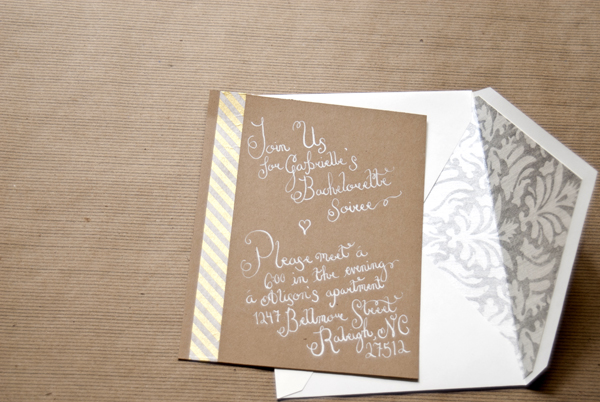 Join Us
for Gabrielle's
Bachelorette
Soiree
Please meet à
6:00 in the evening
à Alison's apartment
1247 Bellmour Street
Raleigh, NC
27512